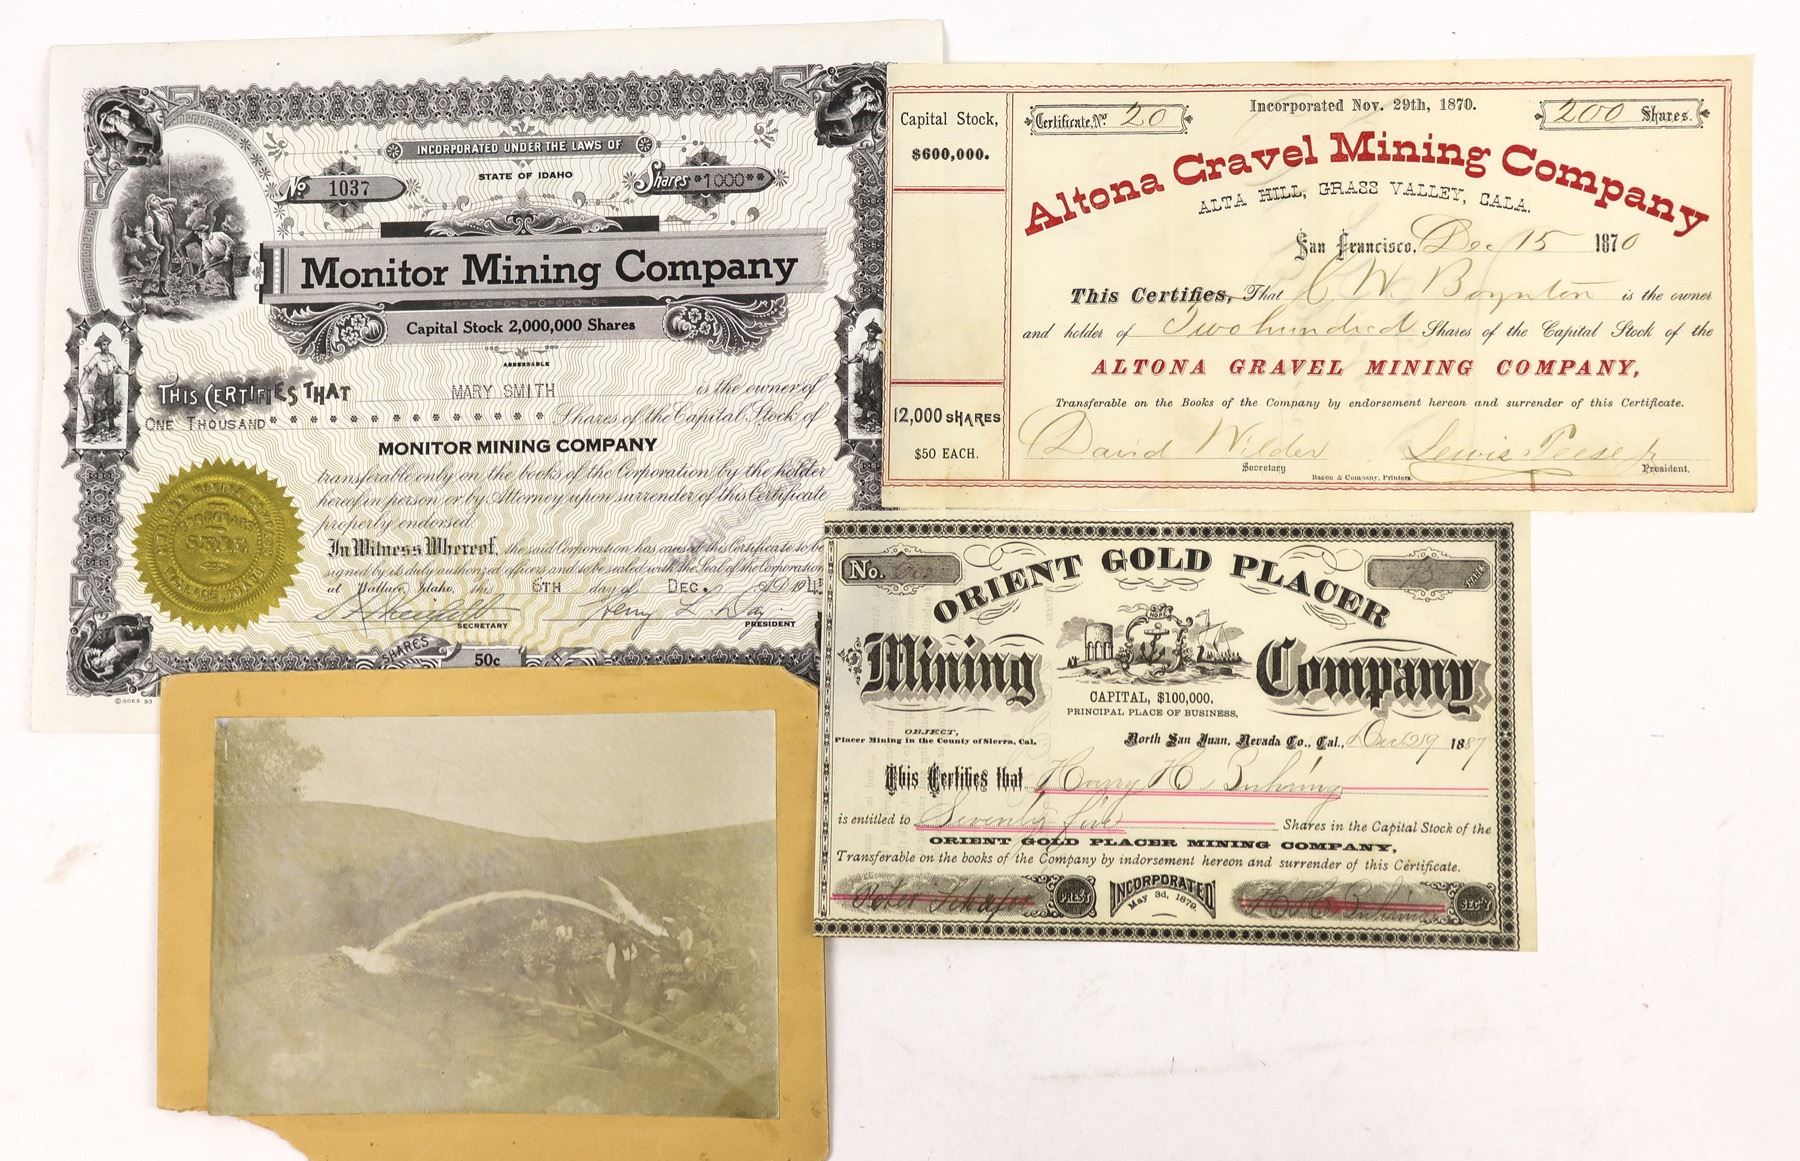 INCORPORATED UNDER THE LAWS OF
STATE OF IDAHO
No 1037
Shares *1000**
Monitor Mining Company
Capital Stock 2,000,000 Shares
ASSESSABLE
THIS CERTIFIES THAT MARY SMITH is the owner of
ONE THOUSAND* * * * * * * * * * * Shares of the Capital Stock of
MONITOR MINING COMPANY
transferable only on the books of the Corporation by the holder
hereof in person or by Attorney upon surrender of this Certificate
properly endorsed.
In Witness Whereof, the said Corporation has caused this Certificate to be
signed by its duly authorized officers and to be sealed with the Seal of the Corporation
at Wallace, Idaho, this 6TH day of DEC. A.D. 194
Henry L. Day
SECRETARY
PRESIDENT
SHARES
50c
© GOES 93
Capital Stock,
$600,000.
12,000 SHARES
$50 EACH.
Certificate No. 20
Incorporated Nov. 29th, 1870.
200 Shares.
Altona Gravel Mining Company
ALTA HILL, GRASS VALLEY, CALA.
San Francisco, Dec 15 1870
This Certifies, That C. W. Boynton is the owner
and holder of Two hundred Shares of the Capital Stock of the
ALTONA GRAVEL MINING COMPANY,
Transferable on the Books of the Company by endorsement hereon and surrender of this Certificate.
David Wilder
Lewis Peese Jr
Secretary
President.
Bacon & Company, Printers
No.
SHARES
ORIENT GOLD PLACER
HOPE
Mining Company
CAPITAL, $100,000.
PRINCIPAL PLACE OF BUSINESS,
OBJECT,
Placer Mining in the County of Sierra, Cal.
North San Juan, Nevada Co., Cal., Dec 1887
This Certifies that Harry H
is entitled to Seventy five Shares in the Capital Stock of the
ORIENT GOLD PLACER MINING COMPANY,
Transferable on the books of the Company by indorsement hereon and surrender of this Certificate.
Peter
PREST
INCORPORATED
May 3d, 1879.
H H
SEC'Y